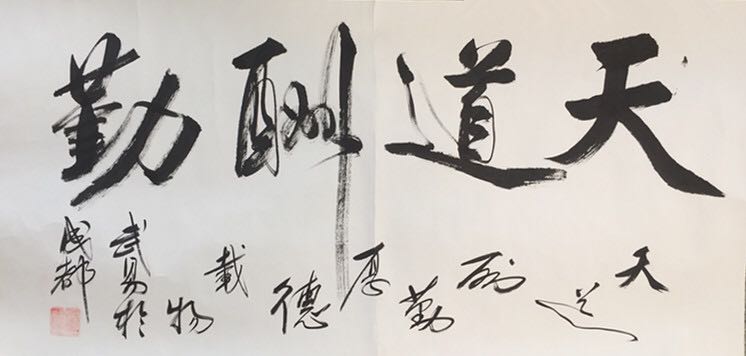 天道酬勤
天道酬勤厚德載物
武易於
成都